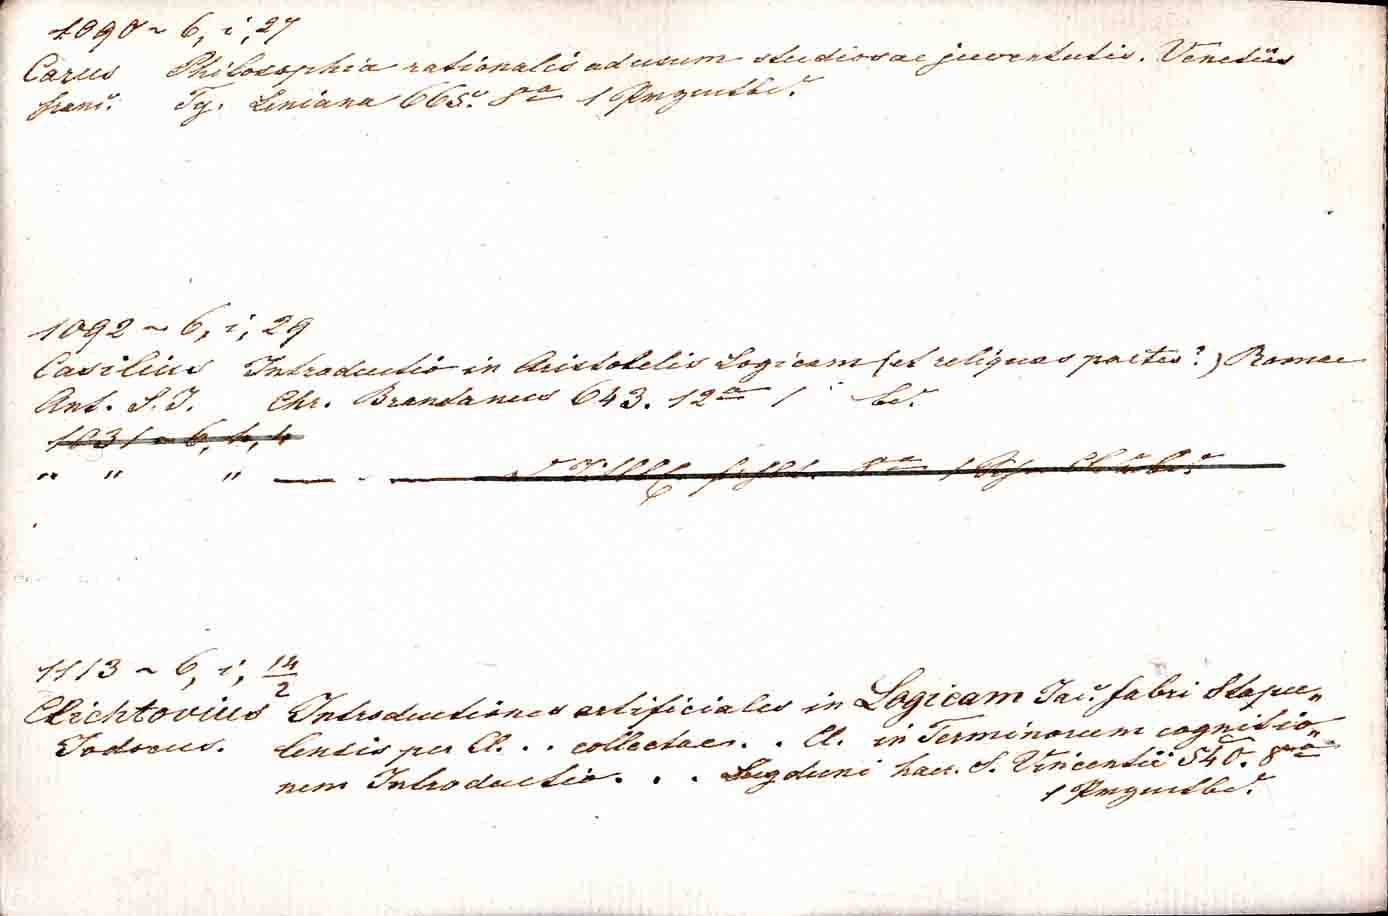 1090 ~ 6, i, 27
Carus Philosophia rationalis ad usum studiosae juventutis. Venetiis
franc. Ty. Leniana 665. 8a 1 Pmgmtbd.
1092 ~ 6, i, 29
Casilius Introductio in Aristotelis Logicam (et reliquas partes?) Romae
Ant. S.J. Chr. Brandaneus 643. 12a 1 bd.
1031 ~ 6, k, k
" " "
1113 ~ 6, i, 14/2
Clichtovius Introductiones artificiales in Logicam Jac. fabri Stapu„
Jodocus. lensis per Cl. . . collectae. . Cl. in Terminorum cognitio„
nem Introductio. . . Lugduni haer. S. Vincentii 540. 8a
1 Pmgmtbd.